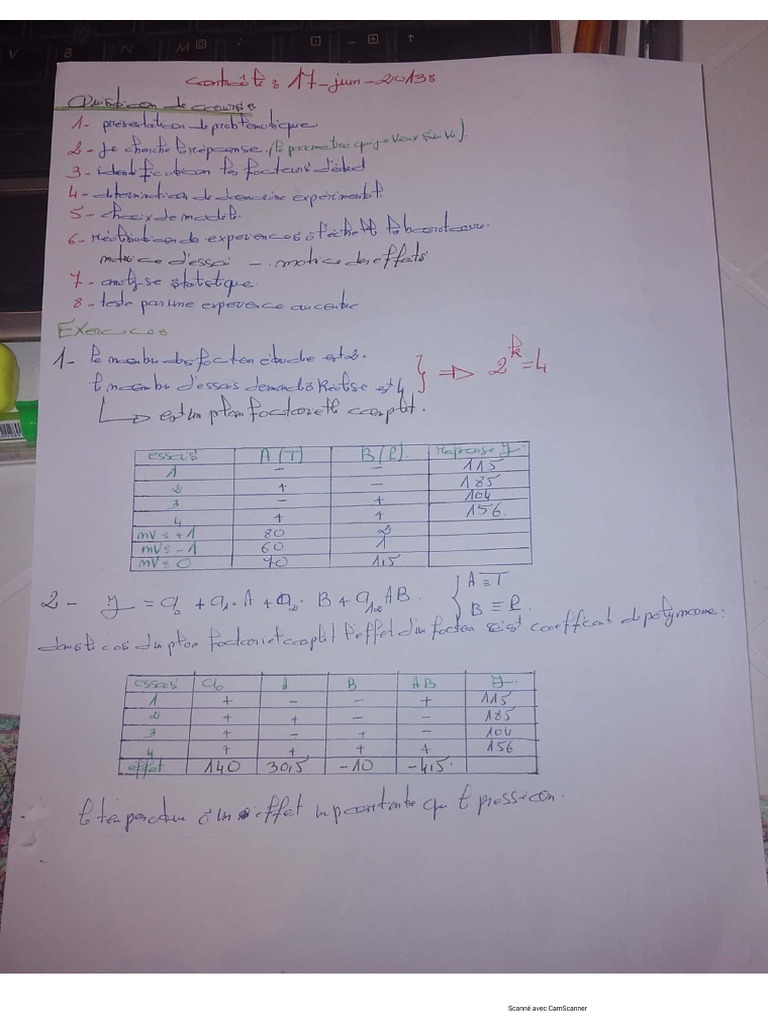 contrôle : 17-juin-2013
Question de cours
1- présentation de problématique
2- Je cherche la réponse (le paramètre que je veux suivre).
3- identification les facteurs d'étud
4- détermination de domaine expérimental.
5- choix de modele.
6- Réalisation de experiences à l'échelle laboratoire.
matrice d'essai - matrice des effets
7- analyse statistique.
8- teste par une experience au centre
Exercices
1- le nombre des facteur étudié est 2.
le nombre d'essais demandé Réalisé est 4 } ⇒ 2^k = 4
↳ est un plan factoriell complet.
essais A(T) B(P) Réponse y
1 - - 115
2 + - 185
3 - + 104
4 + + 156
mV = +1 80 2
mV = -1 60 1
mV = 0 70 1,5
2- y = a0 + a1. A + a2. B + a12 AB. { A ≡ T
B ≡ P.
dans le cas d'un plan factoriel complet l'effet d'un facteur est coefficient de polynome.
essais a0 A B AB y
1 + - - + 115
2 + + - - 185
3 + - + - 104
4 + + + + 156
effet 140 30,5 -10 -4,5
la température à un effet importante que la pression.
Scanné avec CamScanner